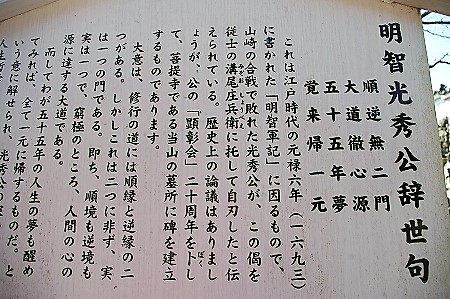 明智光秀公辞世句
順逆無二門
大道徹心源
五十五年夢
覚来帰一元
これは江戸時代の元禄六年（一六九三）
に書かれた「明智軍記」に因るもので、
山崎の合戦で敗れた光秀公が、この偈を
従士の溝尾庄兵衛に托して自刃したと伝
えられている。歴史上の論議はありまし
ょうが、公の「顕彰会」二十周年をトし
て、菩提寺である当山の墓所に碑を建立
するものであります。
大意は、修行の道には順縁と逆縁の二
つがある。しかしこれは二つに非ず、実
は一つの門である。即ち、順境も逆境も
実は一つで、窮極のところ、人間の心の
源に達する大道である。
而してわが五十五年の人生の夢も醒め
てみれば、全て一元に帰するものだ。と
いう意に解せられ、光秀公の